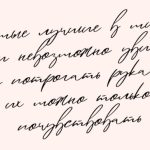 мые лучшие в ми
невозможно уви
потрогать рука
их можно только
почувствовать